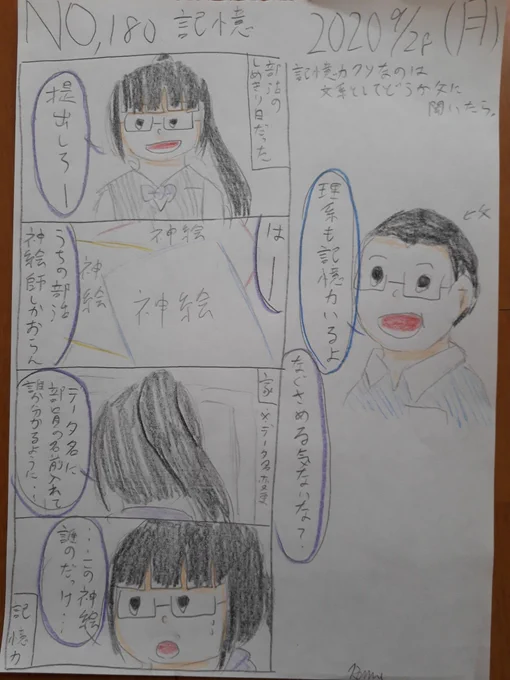 NO,180 記憶 2020 9/28 (月)
部活の
しめきり日だった
提出しろー
はーー
神絵
神絵
神絵
うちの部活
神絵師しかおらん
家
データ名に
部員の名前入れて
誰か分かるように…
…この神絵
誰のだっけ…
記憶力
記憶力クソなのは
文系としてどうか父に
聞いたら。
父
理系も記憶力いるよ
なぐさめる気ないな?